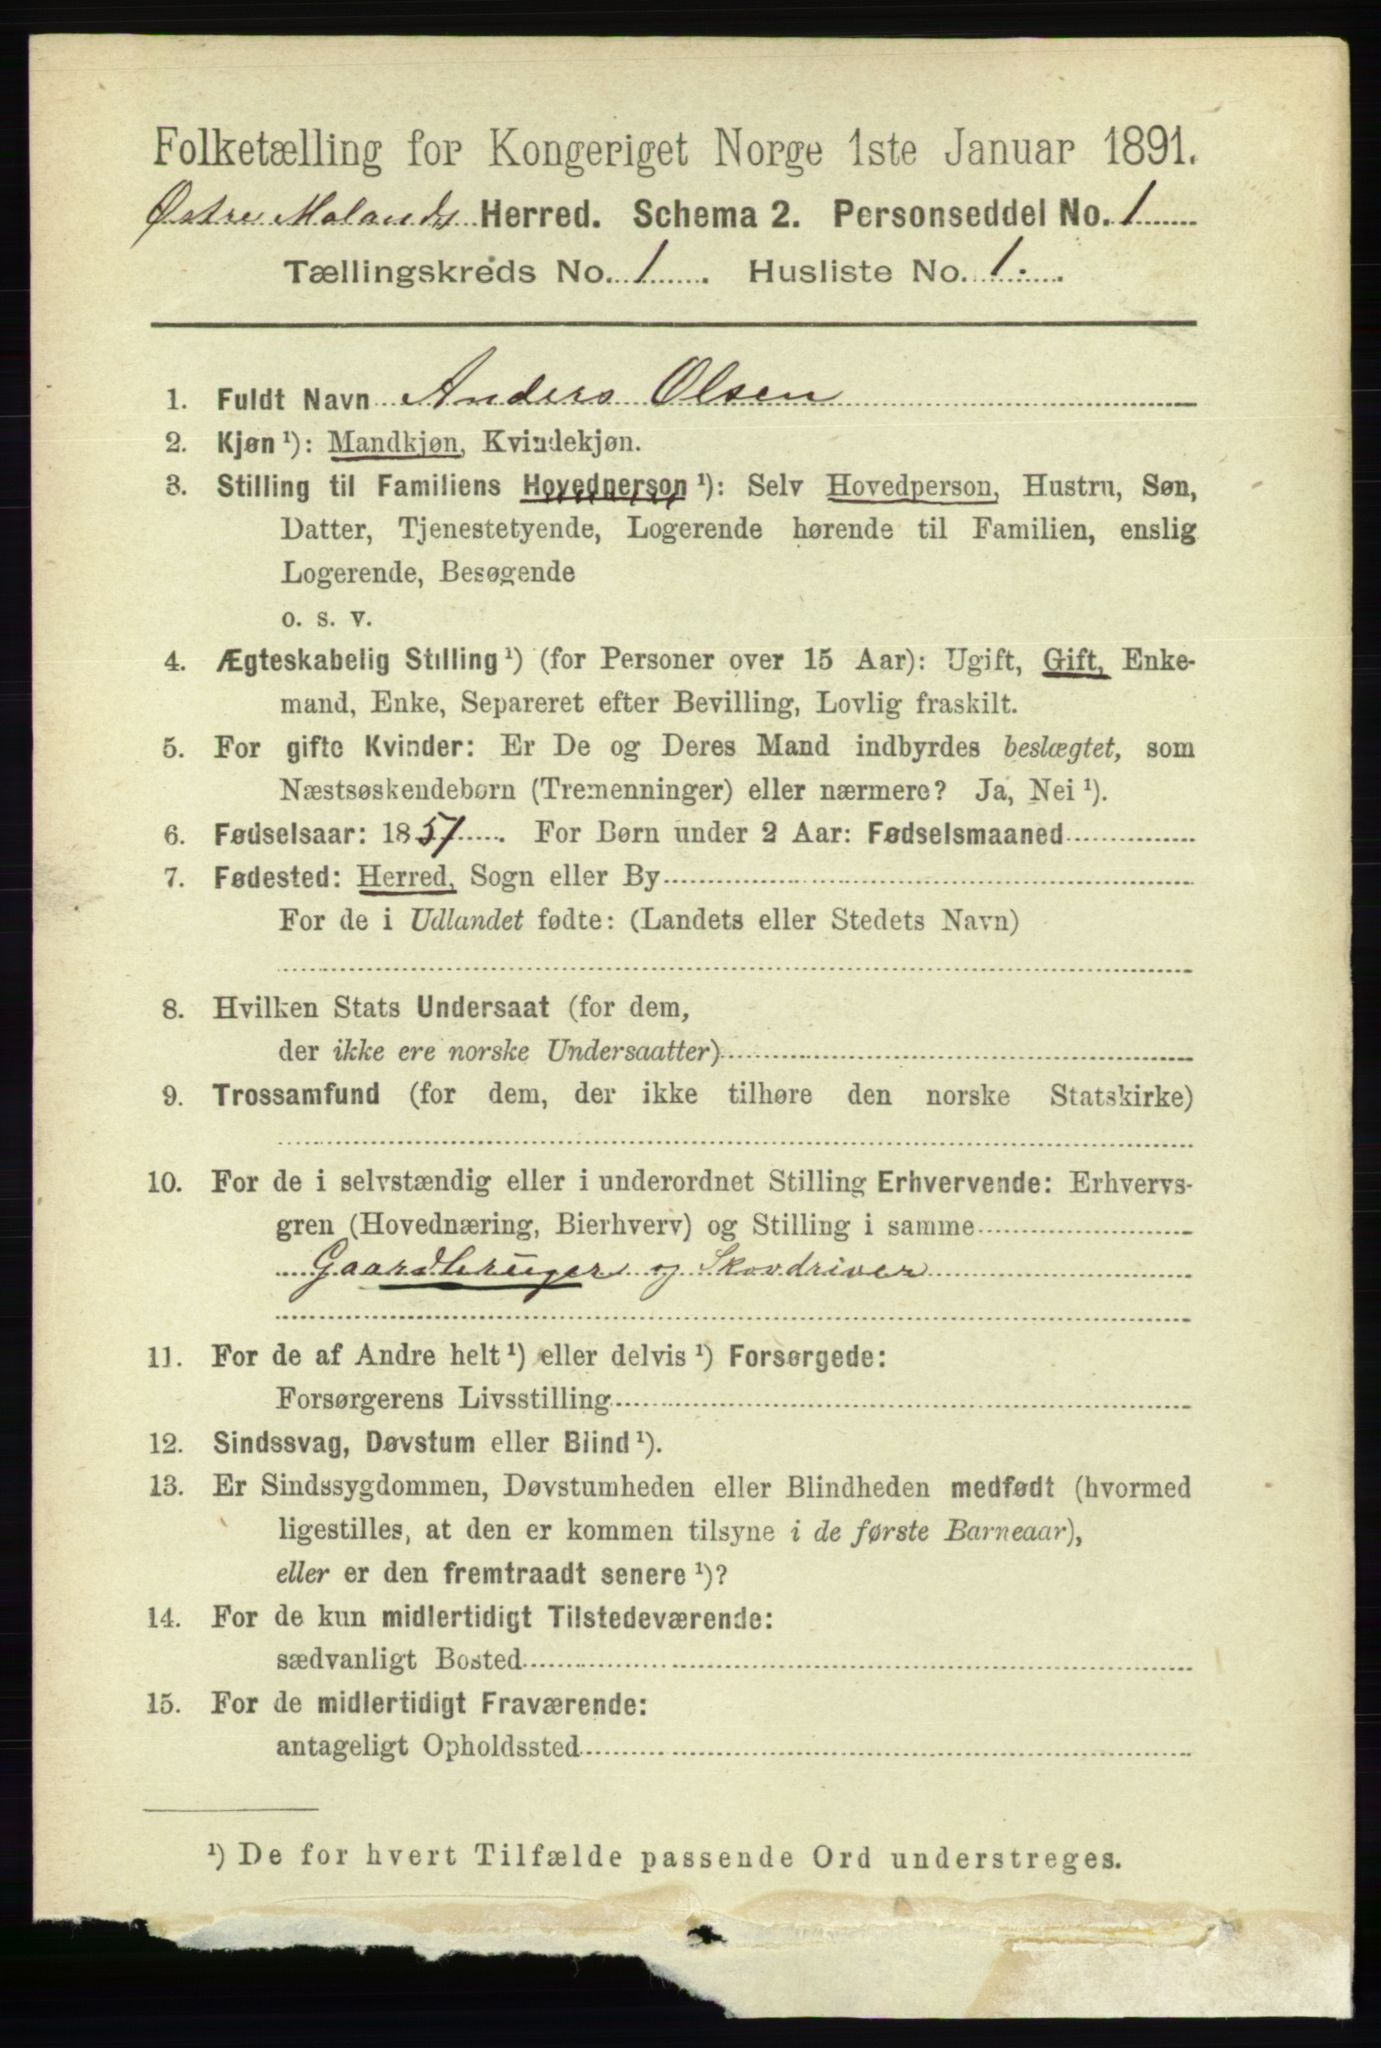 Folketælling for Kongeriget Norge 1ste Januar 1891.
Østre Molands Herred. Schema 2. Personseddel No. 1
Tællingskreds No. 1. Husliste No. 1.
1. Fuldt Navn Anders Olsen
2. Kjøn ¹): Mandkjøn, Kvindekjøn.
3. Stilling til Familiens Hovedperson ¹): Selv Hovedperson, Hustru, Søn,
Datter, Tjenestetyende, Logerende hørende til Familien, enslig
Logerende, Besøgende
o. s. v.
4. Ægteskabelig Stilling ¹) (for Personer over 15 Aar): Ugift, Gift, Enke-
mand, Enke, Separeret efter Bevilling, Lovlig fraskilt.
5. For gifte Kvinder: Er De og Deres Mand indbyrdes beslægtet, som
Næstsøskendebørn (Tremenninger) eller nærmere? Ja, Nei ¹).
6. Fødselsaar: 1857. For Børn under 2 Aar: Fødselsmaaned
7. Fødested: Herred, Sogn eller By
For de i Udlandet fødte: (Landets eller Stedets Navn)
8. Hvilken Stats Undersaat (for dem,
der ikke ere norske Undersaatter)
9. Trossamfund (for dem, der ikke tilhøre den norske Statskirke)
10. For de i selvstændig eller i underordnet Stilling Erhvervende: Erhvervs-
gren (Hovednæring, Bierhverv) og Stilling i samme
Gaardbruger og Skovdriver
11. For de af Andre helt ¹) eller delvis ¹) Forsørgede:
Forsørgerens Livsstilling
12. Sindssvag, Døvstum eller Blind ¹).
13. Er Sindssygdommen, Døvstumheden eller Blindheden medfødt (hvormed
ligestilles, at den er kommen tilsyne i de første Barneaar),
eller er den fremtraadt senere ¹)?
14. For de kun midlertidigt Tilstedeværende:
sædvanligt Bosted
15. For de midlertidigt Fraværende:
antageligt Opholdssted
¹) De for hvert Tilfælde passende Ord understreges.